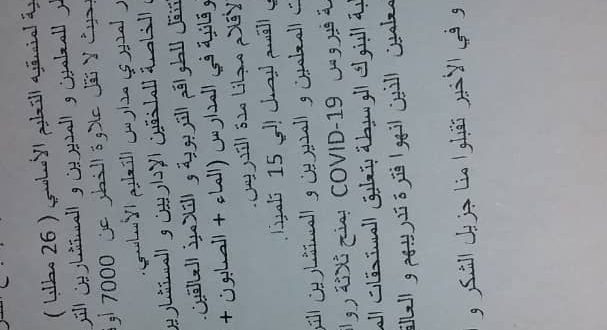 لمنسقية التعليم الأساسي ( 26 مطلبا )
للمعلمين و المديرين و المستشارين التر
بحيث لا تقل علاوة الخطر عن 7000 أو
لمديري مدارس التعليم الأساسي.
الخاصة للملحقين الإداريين و المستشارين
لتنقل للطواقم التربوية و التلاميذ العالقين.
وقائية في المدارس (الماء + الصابون +
لأقلام مجانا مدة التدريس.
القسم ليصل إلى 15 تلميذا.
ت المعلمين و المديرين و المستشارين التر
ة فيروس COVID-19 بمنح ثلاثة روا
بة البنوك الوسيطة بتعليق المستحقات الم
معلمين الذين انهوا فترة تدريبهم و العالق
و في الأخير تقبلوا منا جزيل الشكر و